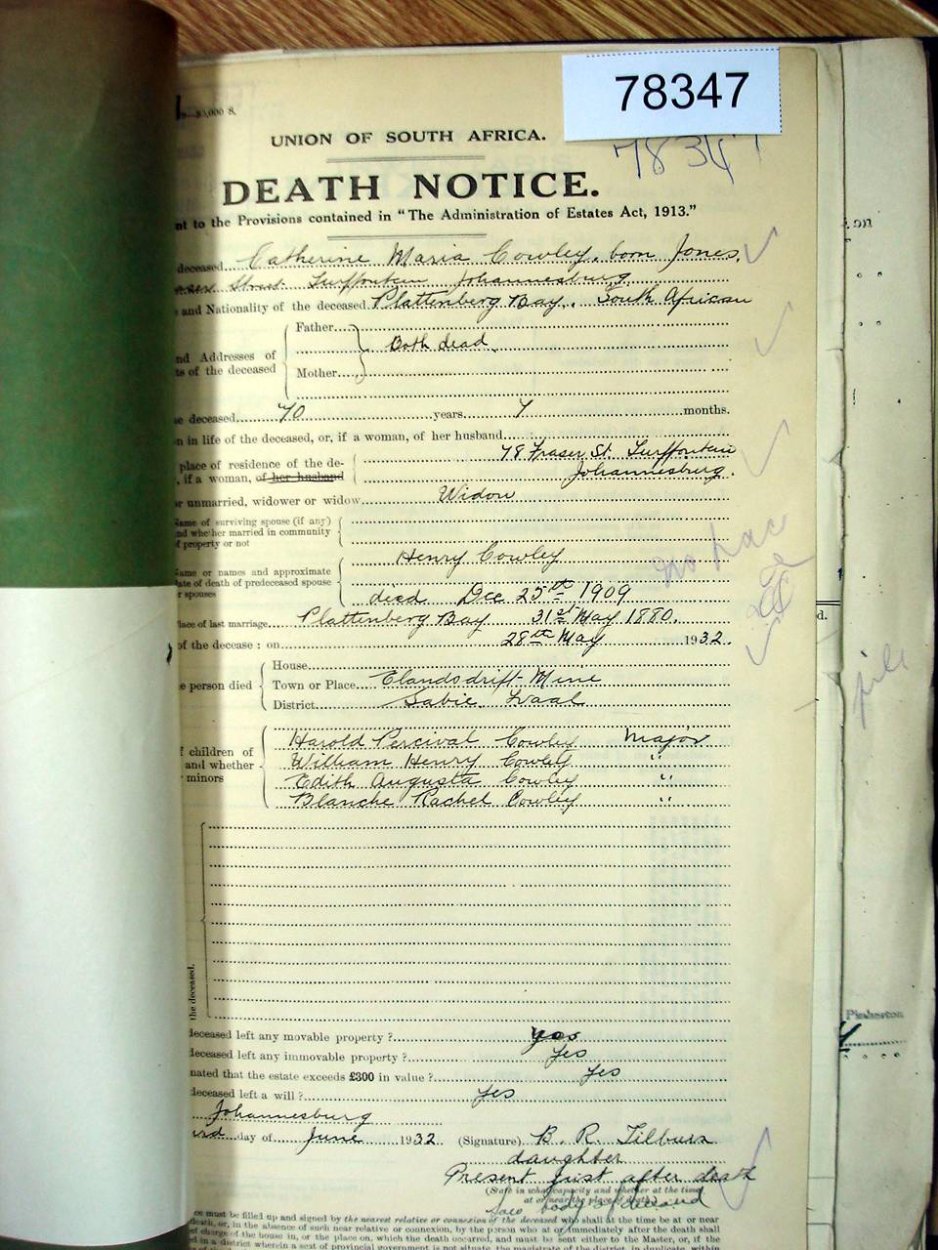 78347
78347
UNION OF SOUTH AFRICA.
DEATH NOTICE.
nt to the Provisions contained in "The Administration of Estates Act, 1913."
deceased Catherine Maria Cowley, born Jones,
Street Turffontein Johannesburg
and Nationality of the deceased Plattenberg Bay. South African
Father
nd Addresses of
ts of the deceased
Both dead
Mother
e deceased 70 years 7 months.
n in life of the deceased, or, if a woman, of her husband
place of residence of the de-
, if a woman, of her husband
78 Fraser St. Turffontein
Johannesburg.
r unmarried, widower or widow Widow
Name of surviving spouse (if any)
nd whether married in community
f property or not
Name or names and approximate
ate of death of predeceased spouse
r spouses
Henry Cowley
died Dec 25th 1909
lace of last marriage Plattenberg Bay 31st May 1880.
of the decease : on 28th May 1932.
e person died
House
Town or Place Elandsdrift Mine
District Sabie, Tvaal
f children of
and whether
minors
Harold Percival Cowley Major
William Henry Cowley "
Edith Augusta Cowley "
Blanche Rachel Cowley "
the deceased.
deceased left any movable property ? Yes
deceased left any immovable property ? Yes
nated that the estate exceeds £300 in value ? Yes
deceased left a will ? Yes
Johannesburg
day of June 1932. (Signature) B. R. Tilburn
daughter
Present just after death
(State in what capacity and whether at the time
at or near the place of death.)
saw body of deceased
ce must be filled up and signed by the nearest relative or connexion of the deceased who shall at the time be at or near
death, or, in the absence of such near relative or connexion, by the person who at or immediately after the death shall
charge of the house in, or the place on, which the death occurred, and must be sent either to the Master, or, if the
d in a district wherein a seat of provincial government is not situate, the magistrate of the district, in duplicate, within